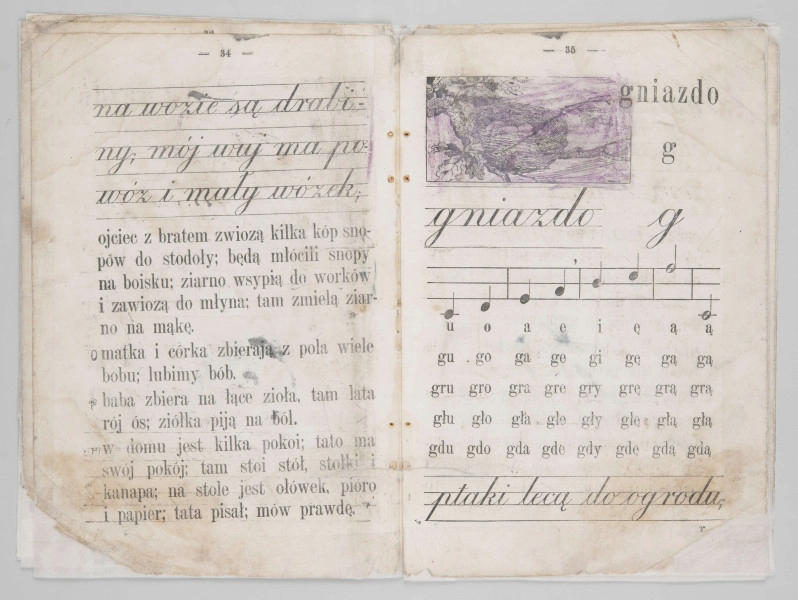 — 34 —
na wozie są drabi-
ny; mój wuj ma po-
wóz i mały wózek;
ojciec z bratem zwiozą kilka kóp sno-
pów do stodoły; będą młócili snopy
na boisku; ziarno wsypią do worków
i zawiozą do młyna; tam zmielą ziar-
no na mąkę.
matka i córka zbierają z pola wiele
bobu; lubimy bób.
baba zbiera na łące zioła, tam lata
rój ós; ziółka piją na ból.
w domu jest kilka pokoi; tato ma
swój pokój; tam stoi stół, stołki i
kanapa; na stole jest ołówek, pióro
i papier; tata pisał; mów prawdę.
— 35 —
gniazdo
g
gniazdo g
u o a e i ę ą ą
gu go ga ge gi gę gą gą
gru gro gra gre gry grę grą grą
głu gło gła głe gły głę głą głą
gdu gdo gda gde gdy gdę gdą gdą
ptaki lecą do ogrodu;